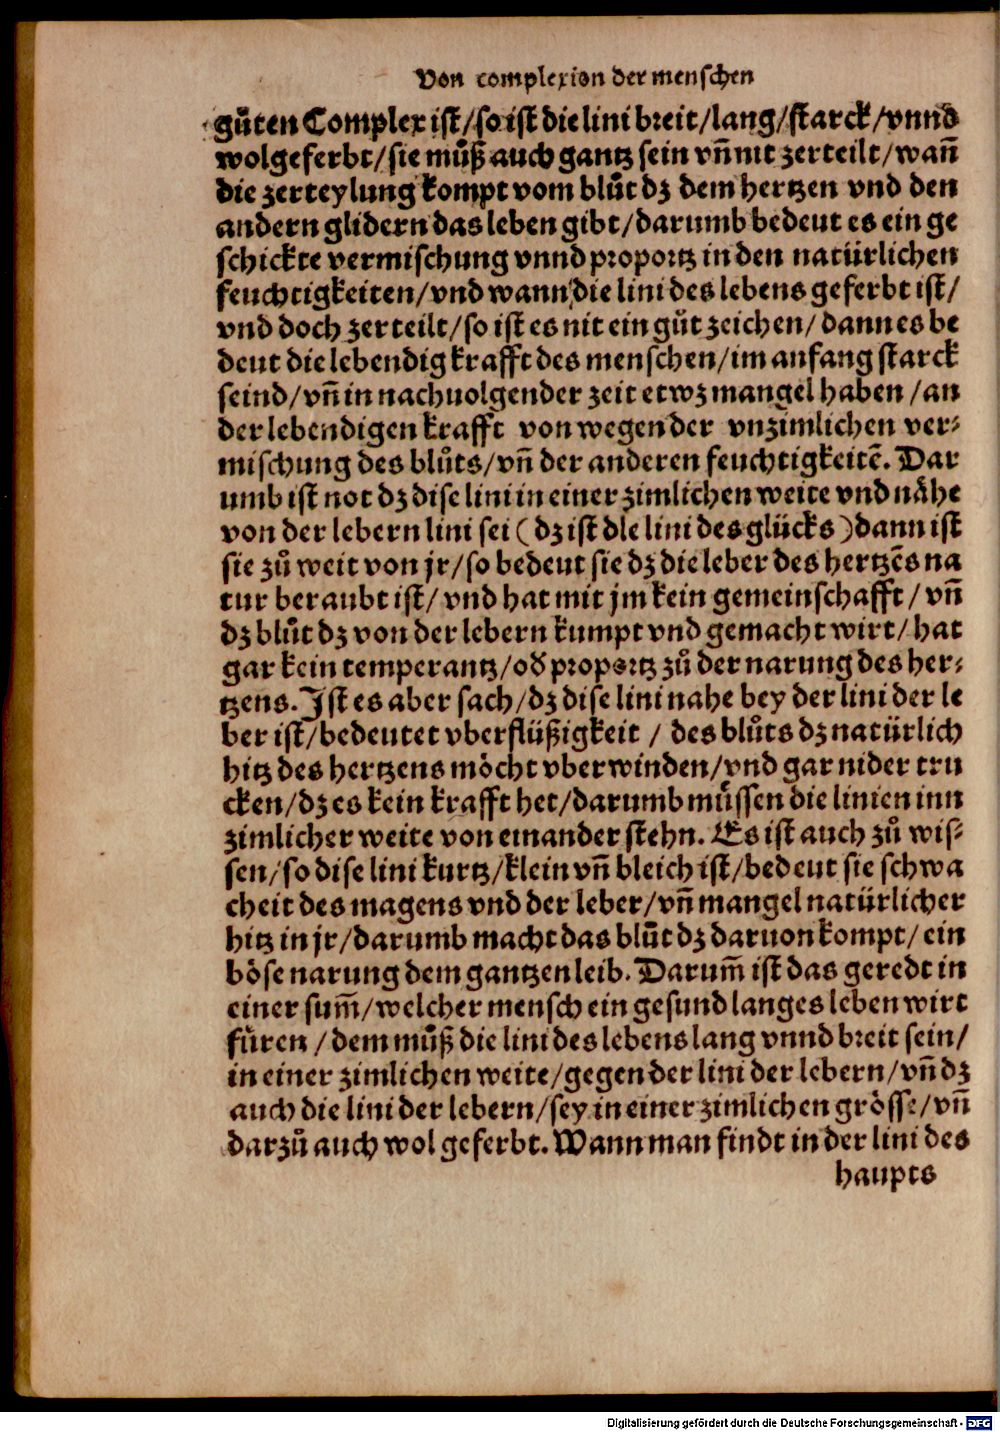 Von complexion der menschen
guͦten Complex ist/so ist die lini breit/lang/starck/vnnd
wolgeferbt/sie muͦß auch gantz sein vñ nit zerteilt/wañ
die zerteylung kompt vom bluͦt dz dem hertzen vnd den
andern glidern das leben gibt/darumb bedeut es ein ge
schickte vermischung vnnd proportz in den natürlichen
feuchtigkeiten/vnd wann die lini des lebens geferbt ist/
vnd doch zerteilt/so ist es nit ein guͦt zeichen/dann es be
deut die lebendig krafft des menschen/im anfang starck
seind/vñ in nachuolgender zeit etwz mangel haben/an
der lebendigen krafft von wegen der vnzimlichen ver⸗
mischung des bluͦts/vñ der anderen feuchtigkeitẽ. Dar
umb ist not dz dise lini in einer zimlichen weite vnd nähe
von der lebern lini sei (dz ist dle lini des glücks) dann ist
sie zuͦ weit von jr/so bedeut sie dz die leber des hertzẽs na
tur beraubt ist/vnd hat mit jm kein gemeinschafft/vñ
dz bluͦt dz von der lebern kumpt vnd gemacht wirt/hat
gar kein temperantz/oď proportz zuͦ der narung des her⸗
tzens. Ist es aber sach/dz dise lini nahe bey der lini der le
ber ist/bedeutet vberflüßigkeit/des bluͦts dz natürlich
hitz des hertzens möcht vberwinden/vnd gar nider tru
cken/dz es kein krafft het/darumb muͤssen die linien inn
zimlicher weite von einander stehn. Es ist auch zuͦ wis⸗
sen/so dise lini kurtz/klein vñ bleich ist/bedeut sie schwa
cheit des magens vnd der leber/vñ mangel natürlicher
hitz in jr/darumb macht das bluͦt dz daruon kompt/ein
böse narung dem gantzen leib. Darum̃ ist das geredt in
einer sum̃/welcher mensch ein gesund langes leben wirt
fuͤren/dem muͦß die lini des lebens lang vnnd breit sein/
in einer zimlichen weite/gegen der lini der lebern/vñ dz
auch die lini der lebern/sey in einer zimlichen grösse/vñ
darzuͦ auch wol geferbt. Wann man findt in der lini des
haupts
Digitalisierung gefördert durch die Deutsche Forschungsgemeinschaft - DFG